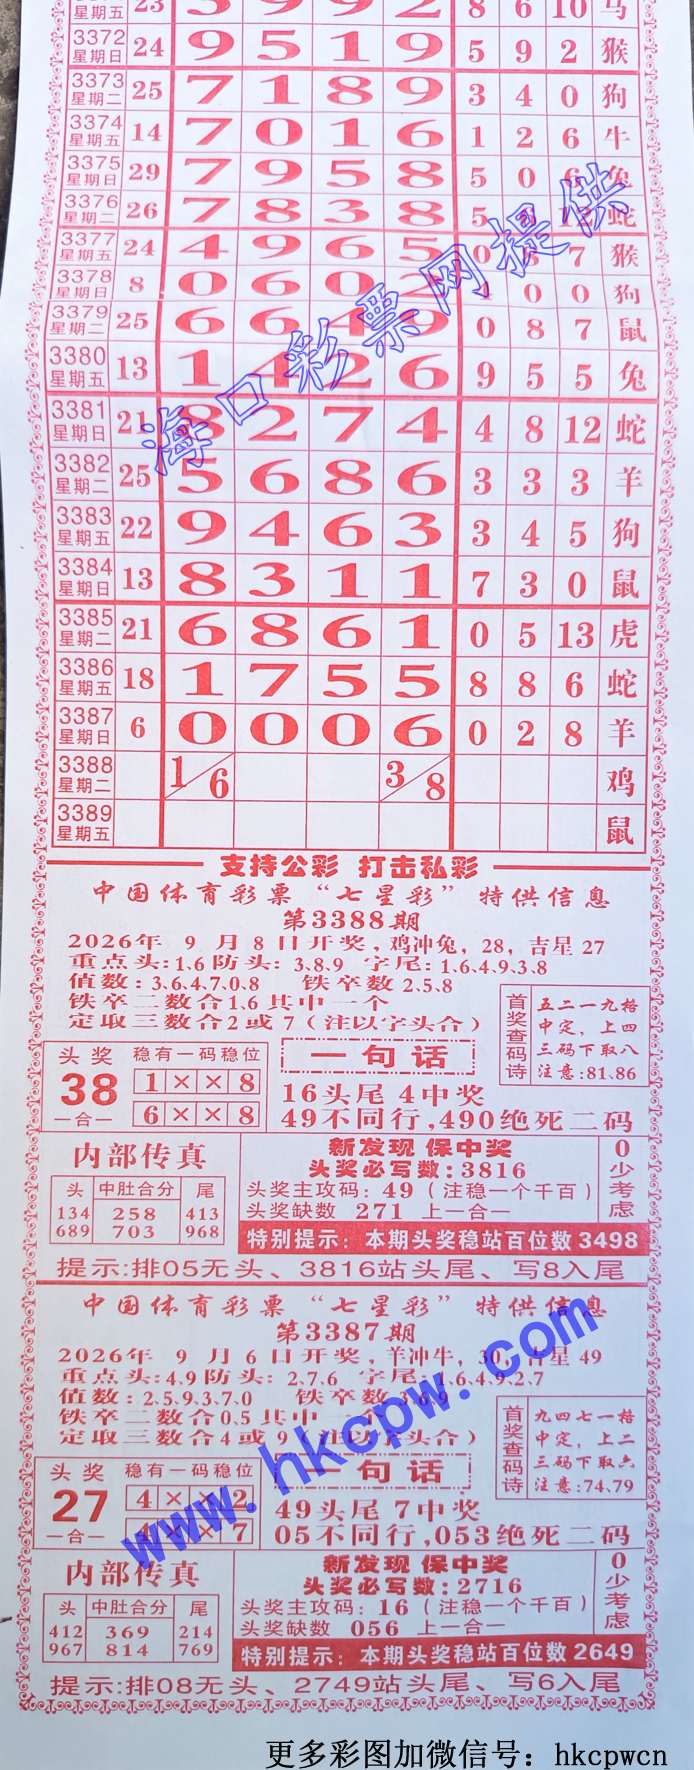 星期五 23 3 9 9 2 8 6 10 马
3372 星期日 24 9 5 1 9 5 9 2 猴
3373 星期二 25 7 1 8 9 3 4 0 狗
3374 星期五 14 7 0 1 6 1 2 6 牛
3375 星期日 29 7 9 5 8 5 0 6 兔
3376 星期二 26 7 8 3 8 5 12 蛇
3377 星期五 24 4 9 6 5 0 7 猴
3378 星期日 8 0 6 0 2 0 0 狗
3379 星期二 25 6 6 4 9 0 8 7 鼠
3380 星期五 13 1 4 2 6 9 5 5 兔
3381 星期日 21 8 2 7 4 4 8 12 蛇
3382 星期二 25 5 6 8 6 3 3 3 羊
3383 星期五 22 9 4 6 3 3 4 5 狗
3384 星期日 13 8 3 1 1 7 3 0 鼠
3385 星期二 21 6 8 6 1 0 5 13 虎
3386 星期五 18 1 7 5 5 8 8 6 蛇
3387 星期日 6 0 0 0 6 0 2 8 羊
3388 星期二 1/6 3/8 鸡
3389 星期五 鼠
海口彩票网提供
支持公彩 打击私彩
中国体育彩票“七星彩”特供信息
第3388期
2026年 9 月 8 日开奖,鸡冲兔,28,吉星 27
重点头:1.6 防头: 3.8.9 字尾:1.6.4.9.3.8
值数: 3.6.4.7.0.8 铁卒数 2.5.8
铁卒二数合1.6 其中一个
定取三数合2 或 7 (注以字头合)
首奖查码诗
五二一九格
中定，上四
三码下取八
注意:81.86
头奖
38
一合一
稳有一码稳位
1 × × 8
6 × × 8
一句话
16头尾 4中奖
49不同行,490绝死二码
内部传真
头 中肚合分 尾
134 258 413
689 703 968
新发现 保中奖
头奖必写数:3816
头奖主攻码: 49 (注稳一个千百)
头奖缺数 271 上一合一
0少考虑
特别提示: 本期头奖稳站百位数 3498
提示:排05无头、3816站头尾、写8入尾
中国体育彩票“七星彩”特供信息
第3387期
2026年 9 月 6 日开奖,羊冲牛,30,吉星 49
重点头:4.9 防头: 2.7.6 字尾:1.6.4.9.2.7
值数: 2.5.9.3.7.0 铁卒数 3.6.9
铁卒二数合0.5 其中一个
定取三数合4 或 9 (注以字头合)
首奖查码诗
九四七一格
中定，上二
三码下取六
注意:74.79
头奖
27
一合一
稳有一码稳位
4 × × 2
4 × × 7
一句话
49头尾 7中奖
05不同行,053绝死二码
内部传真
头 中肚合分 尾
412 369 214
967 814 769
新发现 保中奖
头奖必写数:2716
头奖主攻码: 16 (注稳一个千百)
头奖缺数 056 上一合一
0少考虑
特别提示: 本期头奖稳站百位数 2649
提示:排08无头、2749站头尾、写6入尾
www.hkcpw.com
更多彩图加微信号: hkcpwcn